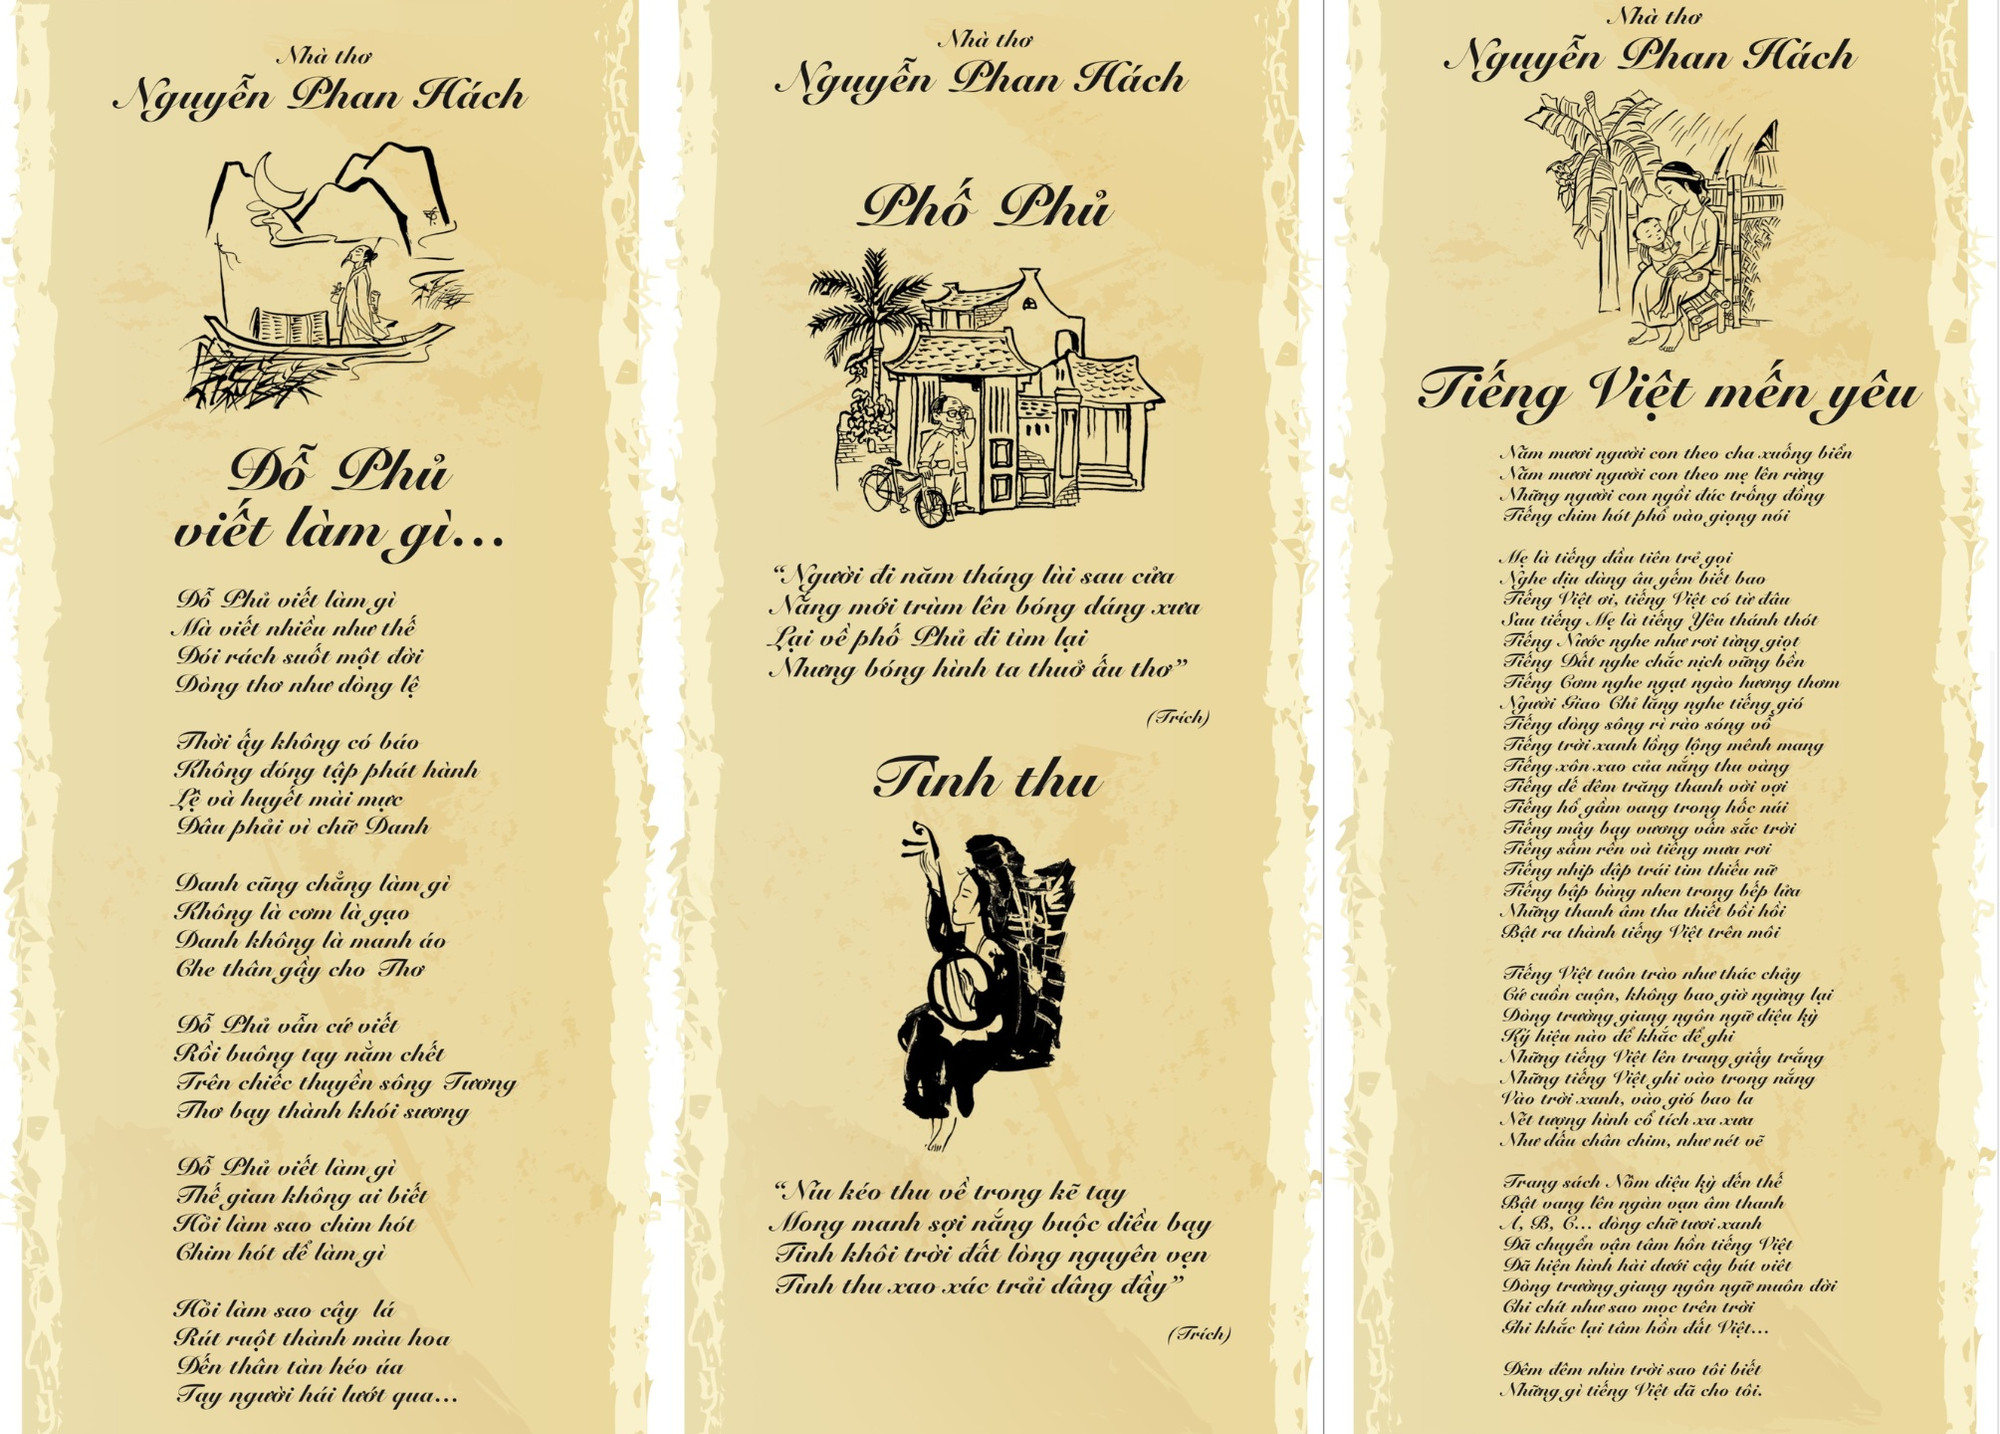 Nhà thơ
Nguyễn Phan Hách
Đỗ Phủ
viết làm gì...
Đỗ Phủ viết làm gì
Mà viết nhiều như thế
Đói rách suốt một đời
Dòng thơ như dòng lệ
Thời ấy không có báo
Không đóng tập phát hành
Lệ và huyết mài mực
Đâu phải vì chữ Danh
Danh cũng chẳng làm gì
Không là cơm là gạo
Danh không là manh áo
Che thân gầy cho Thơ
Đỗ Phủ vẫn cứ viết
Rồi buông tay nằm chết
Trên chiếc thuyền sông Tương
Thơ bay thành khói sương
Đỗ Phủ viết làm gì
Thế gian không ai biết
Hỏi làm sao chim hót
Chim hót để làm gì
Hỏi làm sao cây lá
Rút ruột thành màu hoa
Đến thân tàn héo úa
Tay người hái lướt qua...
Nhà thơ
Nguyễn Phan Hách
Phố Phủ
“Người đi năm tháng lùi sau cửa
Nắng mới trùm lên bóng dáng xưa
Lại về phố Phủ đi tìm lại
Nhưng bóng hình ta thuở ấu thơ”
(Trích)
Tình thu
“Níu kéo thu về trong kẽ tay
Mong manh sợi nắng buộc diều bay
Tinh khôi trời đất lòng nguyên vẹn
Tình thu xao xác trải dâng đầy”
(Trích)
Nhà thơ
Nguyễn Phan Hách
Tiếng Việt mến yêu
Năm mươi người con theo cha xuống biển
Năm mươi người con theo mẹ lên rừng
Những người con ngồi đúc trống đồng
Tiếng chim hót phổ vào giọng nói
Mẹ là tiếng đầu tiên trẻ gọi
Nghe dịu dàng âu yếm biết bao
Tiếng Việt ơi, tiếng Việt có từ đâu
Sau tiếng Mẹ là tiếng Yêu thánh thót
Tiếng Nước nghe như rơi từng giọt
Tiếng Đất nghe chắc nịch vững bền
Tiếng Cơm nghe ngạt ngào hương thơm
Người Giao Chỉ lắng nghe tiếng gió
Tiếng dòng sông rì rào sóng vỗ
Tiếng trời xanh lồng lộng mênh mang
Tiếng xôn xao của nắng thu vàng
Tiếng dế đêm trăng thanh vời vợi
Tiếng hổ gầm vang trong hốc núi
Tiếng mây bay vương vấn sắc trời
Tiếng sấm rền và tiếng mưa rơi
Tiếng nhịp đập trái tim thiếu nữ
Tiếng bập bùng nhen trong bếp lửa
Những thanh âm tha thiết bồi hồi
Bật ra thành tiếng Việt trên môi
Tiếng Việt tuôn trào như thác chảy
Cứ cuồn cuộn, không bao giờ ngừng lại
Dòng trường giang ngôn ngữ diệu kỳ
Ký hiệu nào để khắc để ghi
Những tiếng Việt lên trang giấy trắng
Những tiếng Việt ghi vào trong nắng
Vào trời xanh, vào gió bao la
Nét tượng hình cổ tích xa xưa
Như dấu chân chim, như nét vẽ
Trang sách Nôm diệu kỳ đến thế
Bật vang lên ngàn vạn âm thanh
A, B, C... dòng chữ tươi xanh
Đã chuyển vận tâm hồn tiếng Việt
Đã hiện hình hài dưới cây bút viết
Dòng trường giang ngôn ngữ muôn đời
Chi chít như sao mọc trên trời
Ghi khắc lại tâm hồn đất Việt...
Đêm đêm nhìn trời sao tôi biết
Những gì tiếng Việt đã cho tôi.